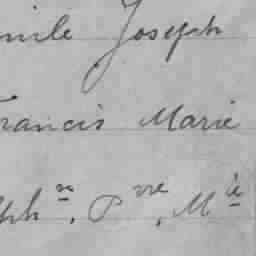 mile Joseph
Francis Marie
ph^n, P^re, M^ie